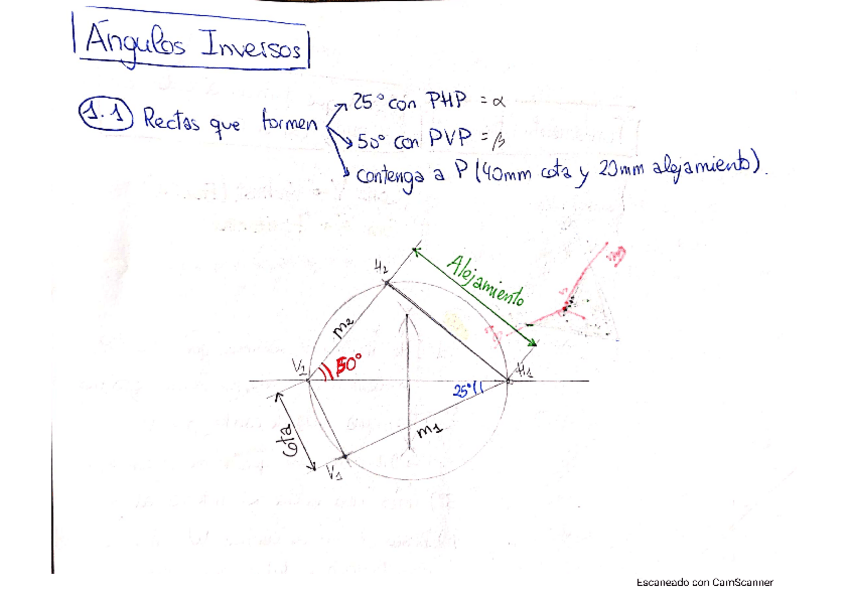 Ángulos Inversos
1.1 Rectas que formen
25° con PHP = α
50° con PVP = β
contenga a P (40mm cota y 20mm alejamiento).
H2
Alejamiento
m2
V2
50°
25°
H1
Cota
m1
V1
Escaneado con CamScanner